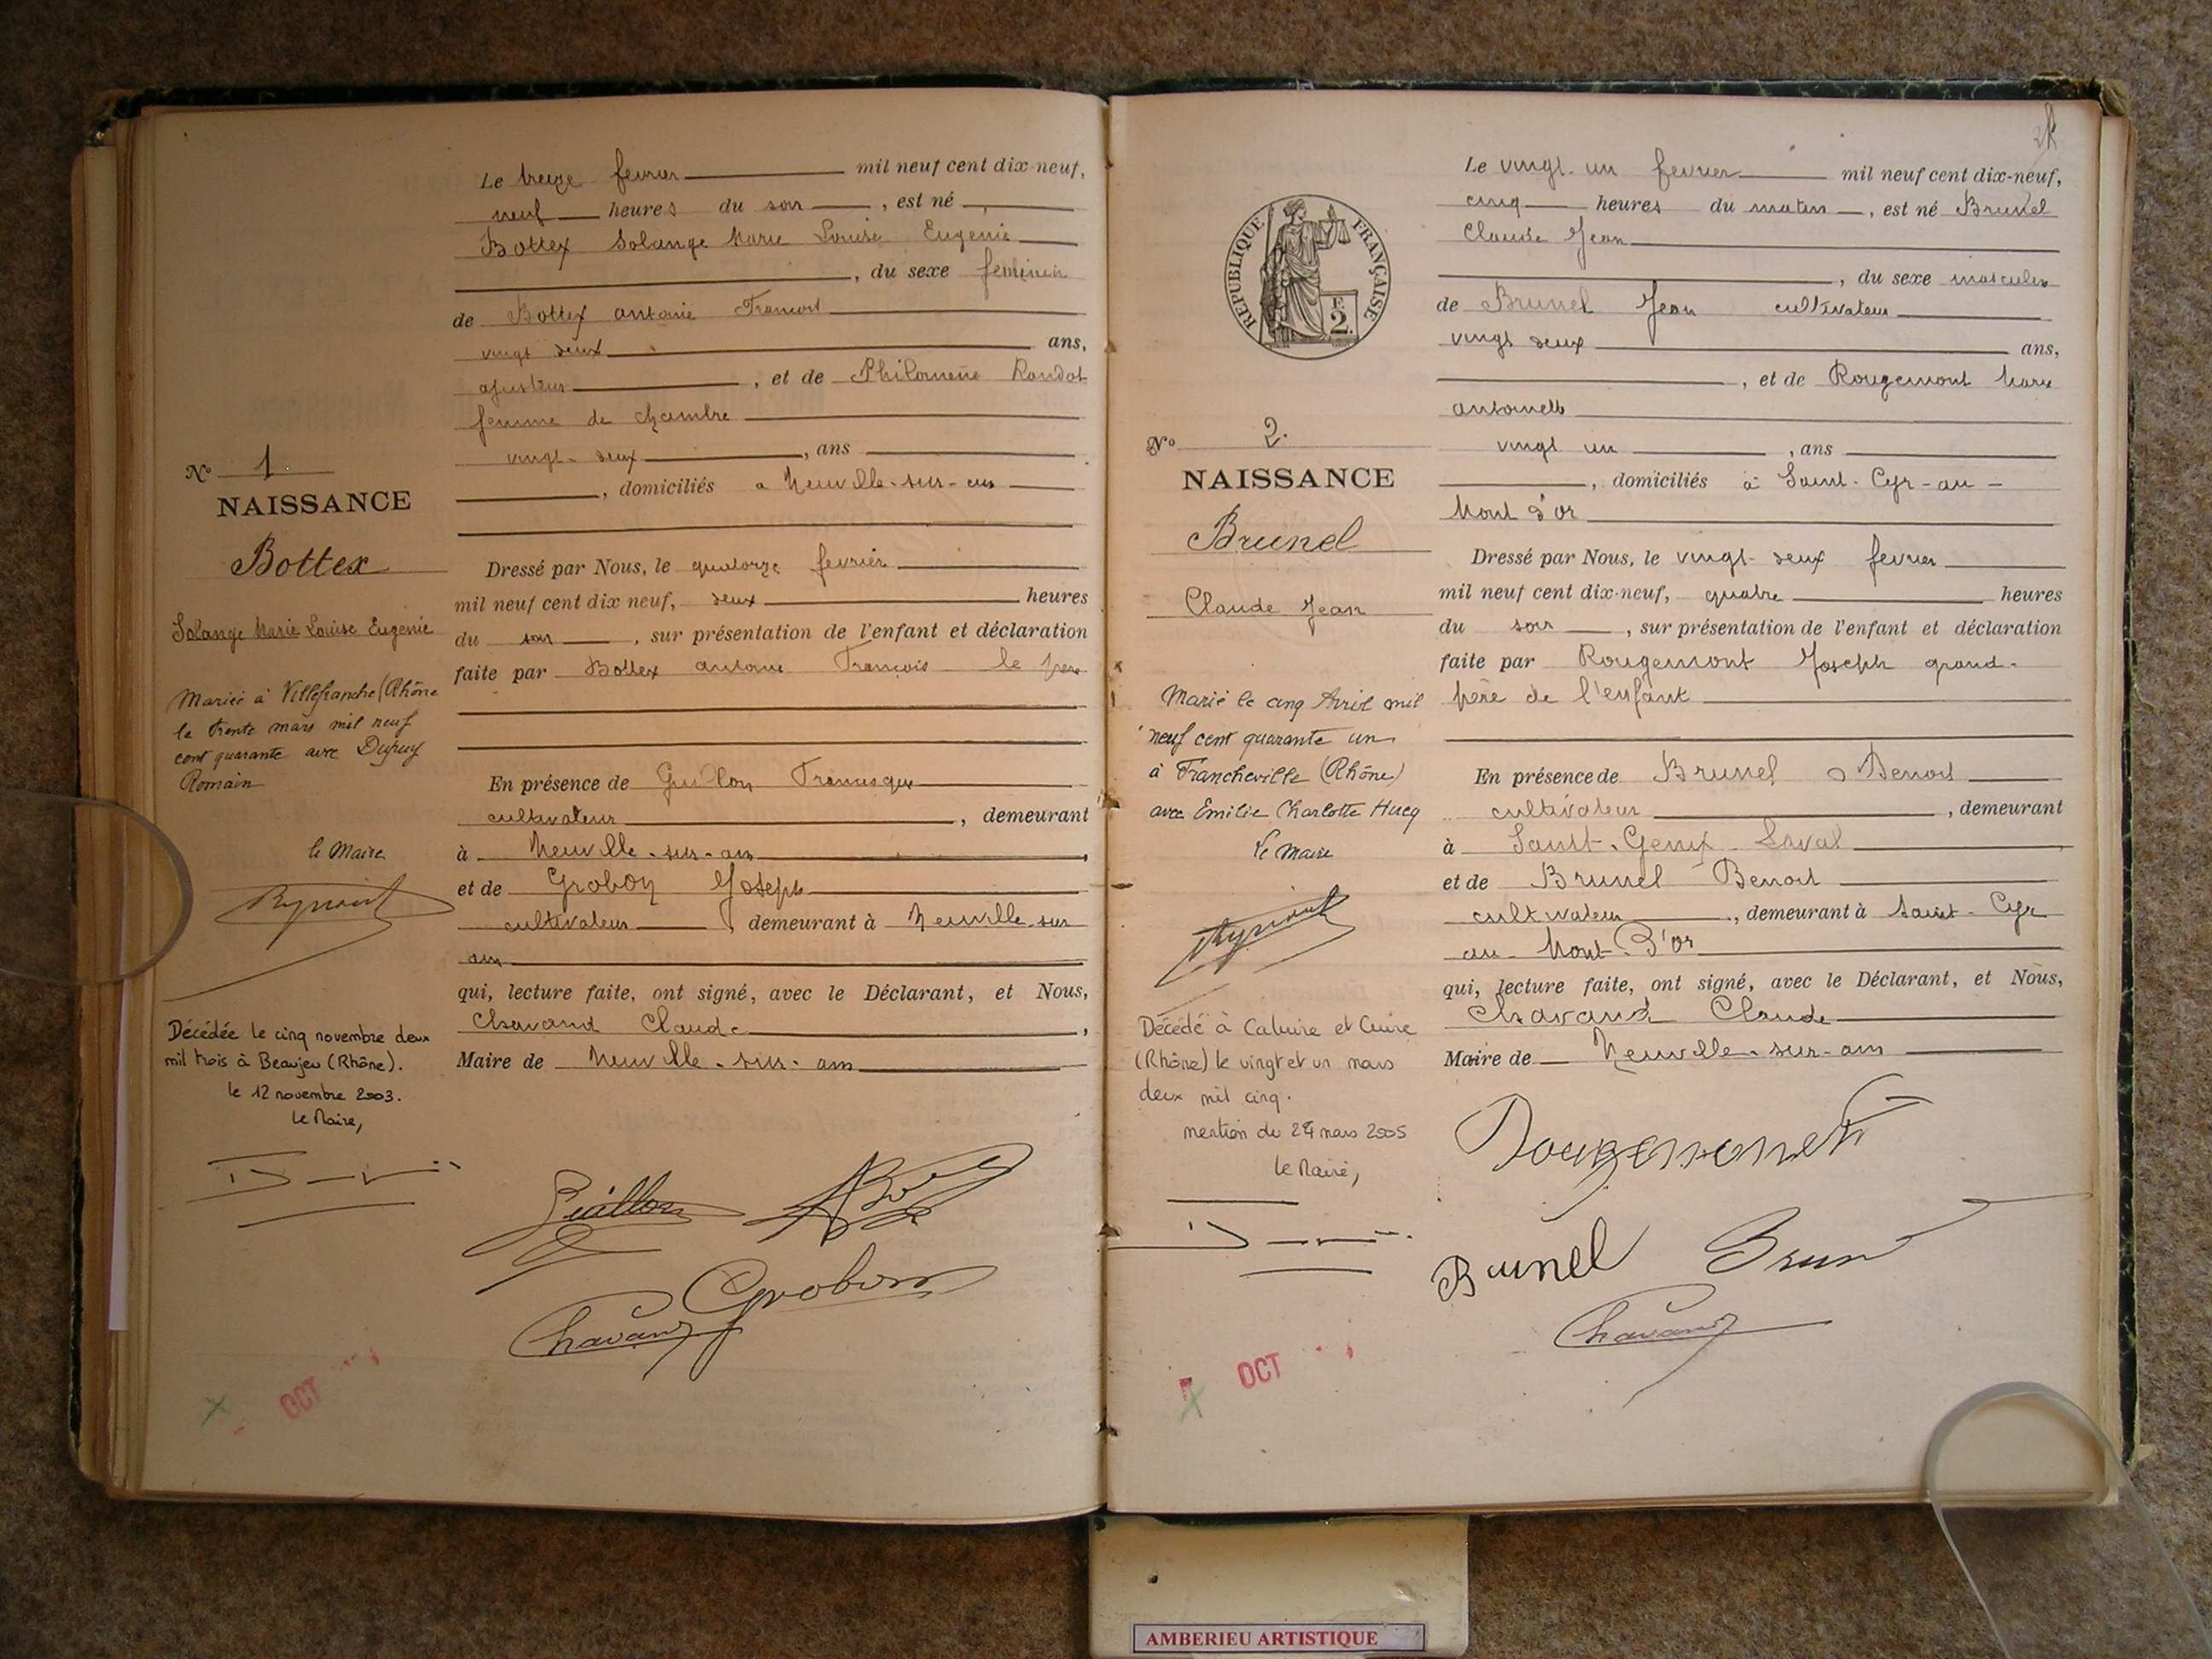 Le treize fevrier mil neuf cent dix-neuf,
neuf heures du soir, est né,
Bottex Solange Marie Louise Eugenie
, du sexe feminin
de Bottex antoine Francois
vingt deux ans,
ajusteur, et de Philomène Roudot
femme de chambre
vingt-deux, ans
, domiciliés a Neuville-sur-ain
N° 1.
NAISSANCE
Bottex
Solange Marie Louise Eugenie
Dressé par Nous, le quatorze fevrier
mil neuf cent dix neuf, deux heures
du soir, sur présentation de l'enfant et déclaration
faite par Bottex antoine Francois le père
Mariée à Villefranche (Rhône
le trente mars mil neuf
cent quarante avec Dupuy
Romain
le Maire
En présence de Guillon Francisque
cultivateur, demeurant
à Neuville-sur-ain,
et de Grobon Joseph
cultivateur, demeurant à Neuville-sur
ain
qui, lecture faite, ont signé, avec le Déclarant, et Nous,
Chavand Claude,
Maire de Neuville-sur-ain
Décédée le cinq novembre deux
mil trois à Beaujeu (Rhône).
le 12 novembre 2003.
Le Maire,
Guillon
Grobon
Chavand
OCT
Le vingt-un fevrier mil neuf cent dix-neuf,
cinq heures du matin, est né Brunel
Claude Jean
, du sexe masculin
de Brunel Jean cultivateur
vingt deux ans,
, et de Rougemont Marie
antoinette
vingt un, ans
, domiciliés à Saint-Cyr-au-
Mont d'or
RÉPUBLIQUE FRANÇAISE
F.
2.
N° 2.
NAISSANCE
Brunel
Claude Jean
Dressé par Nous, le vingt-deux fevrier
mil neuf cent dix-neuf, quatre heures
du soir, sur présentation de l'enfant et déclaration
faite par Rougemont Joseph grand-
père de l'enfant
Marié le cinq Avril mil
neuf cent quarante un
à Francheville (Rhône)
avec Emilie Charlotte Hucq
Le Maire
En présence de Brunel Benoit
cultivateur, demeurant
à Saint-Genix-Laval
et de Brunel Benoit
cultivateur, demeurant à Saint-Cyr
au-Mont-D'or
qui, lecture faite, ont signé, avec le Déclarant, et Nous,
Chavand Claude
Maire de Neuville-sur-ain
Décédé à Caluire et Cuire
(Rhône) le vingt et un mars
deux mil cinq.
mention du 24 mars 2005
Le Maire,
Rougemont
Brunel Brun
Chavand
OCT
AMBERIEU ARTISTIQUE